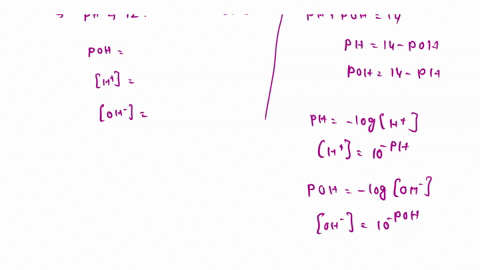 POH =
[H⁺] =
[OH⁻] =
PH + POH = 14
PH = 14 - POH
POH = 14 - PH
PH = -log[H⁺]
[H⁺] = 10^-PH
POH = -log[OH⁻]
[OH⁻] = 10^-POH